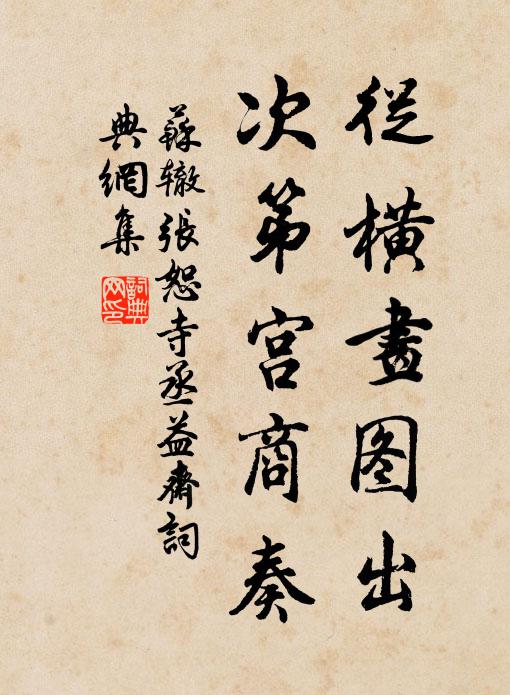 從橫畫图出
次第宫商奏
蘇辙張恕寺丞益齋詞
典網集
詞典网印